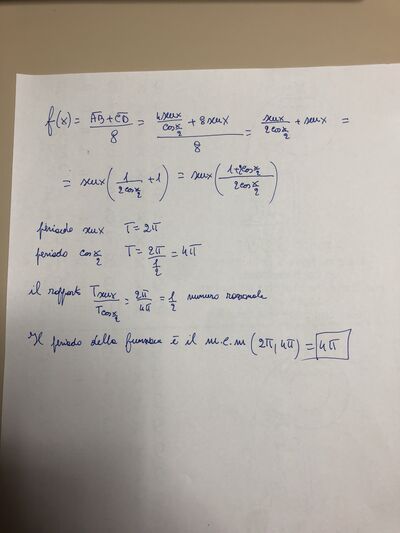 f(x) = (AB + CD)/8 = (4senx/cos x/2 + 8senx)/8 = senx/(2cos x/2) + senx =
= senx (1/(2cos x/2) + 1) = senx ((1+2cos x/2)/(2cos x/2))
periodo senx T = 2π
periodo cos x/2 T = 2π/(1/2) = 4π
il rapporto Tsenx/Tcos x/2 = 2π/4π = 1/2 numero razionale
Il periodo della funzione è il m.c.m (2π, 4π) = 4π